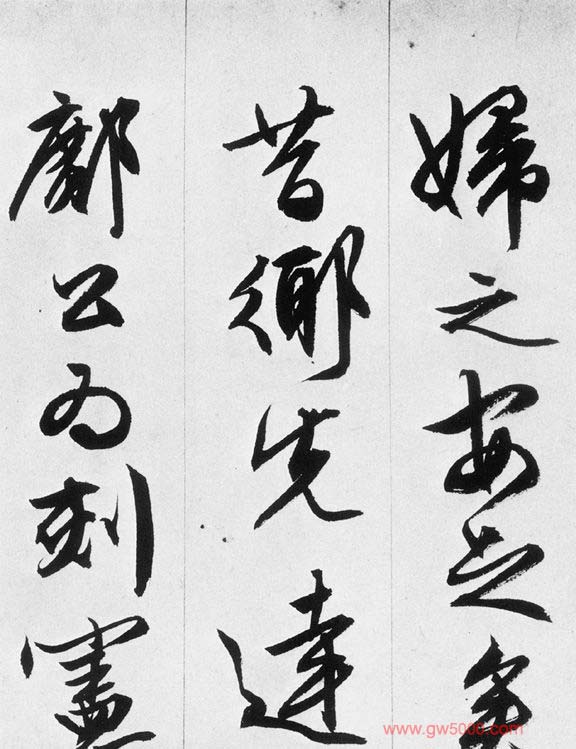 婦之安
昔鄉先達
鄺公为刻憲
www.gw5000.com